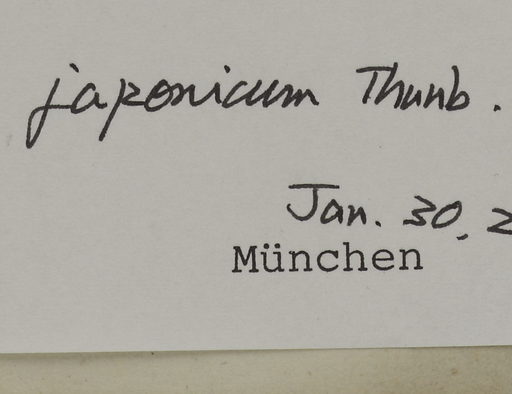 japonicum Thunb.
Jan. 30, 2
München